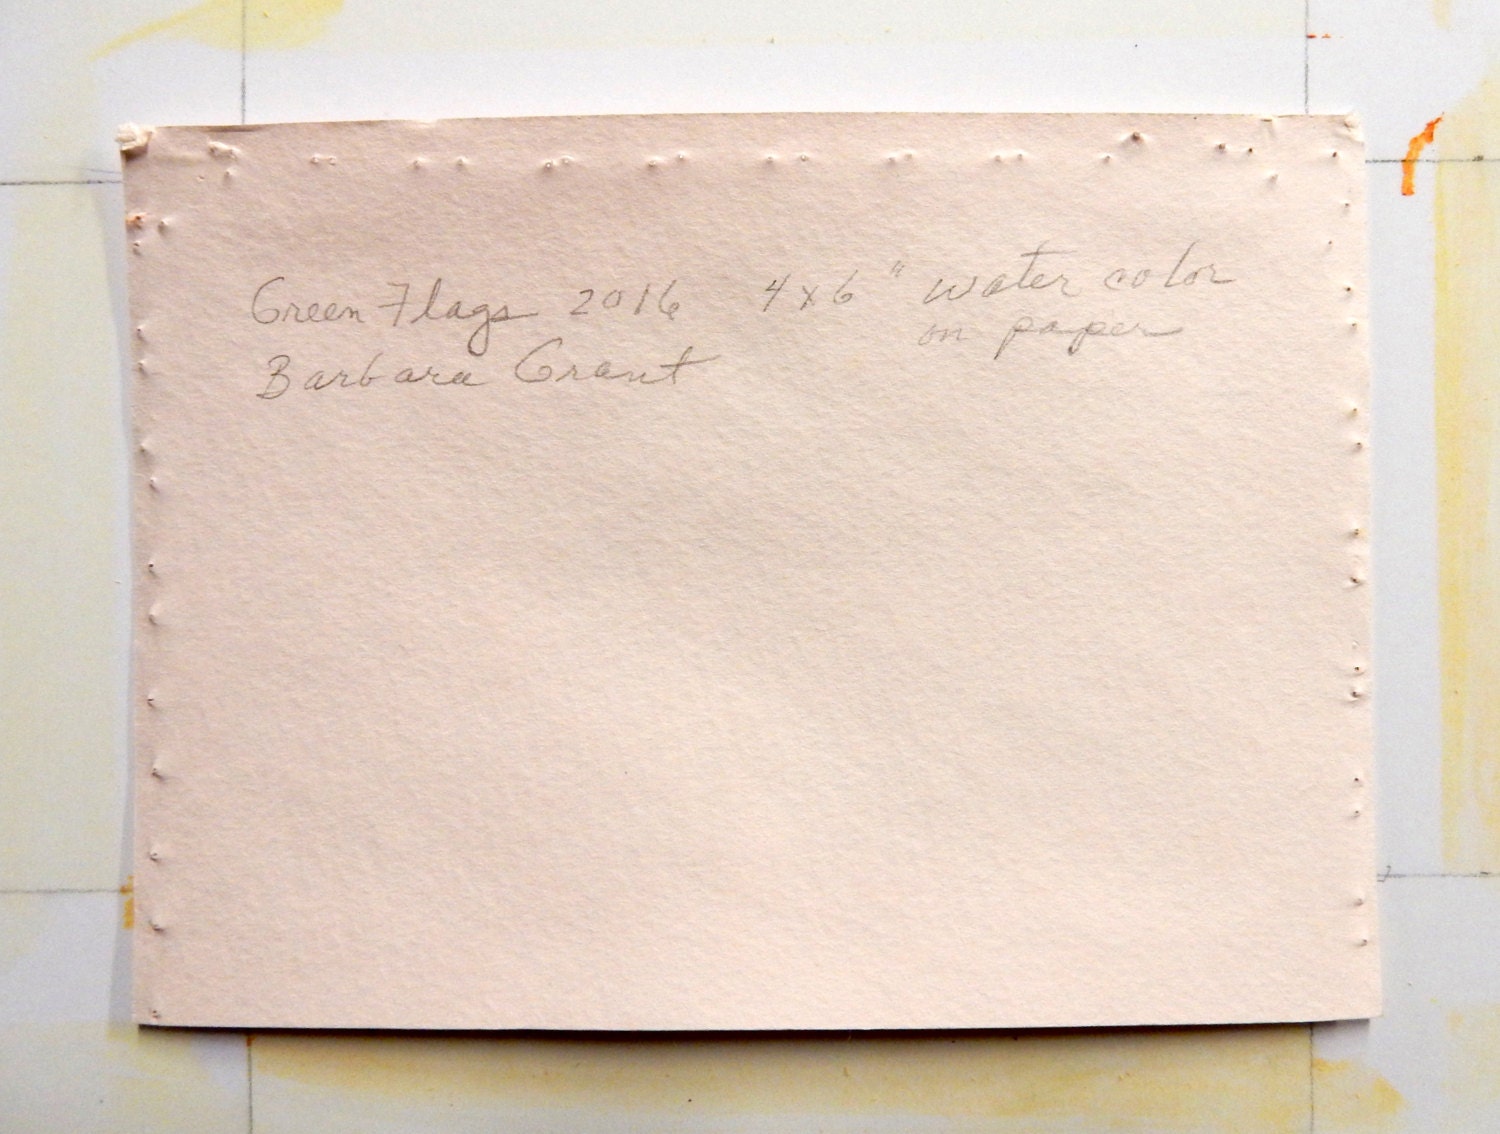 Green Flags 2016 4x6" water color
on paper
Barbara Grant